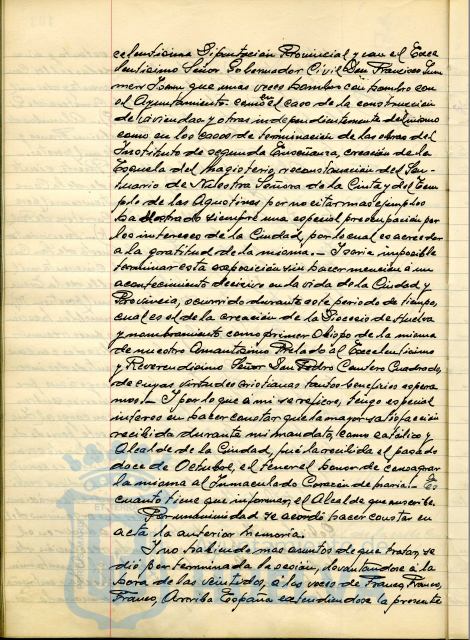 celentísima Diputación Provincial y con el Exce
lentísimo Señor Gobernador Civil Don Francisco Sum
mers Isern que unas veces hombro con hombro con
el Ayuntamiento como en el caso de la construcción
de viviendas y otras independientemente del mismo
como en los casos de terminación de las obras del
Instituto de segunda Enseñanza, creación de la
Escuela del Magisterio, reconstrucción del San-
tuario de Nuestra Señora de la Cinta y del Tem
plo de las Agustinas por no citar mas ejemplos
ha mostrado siempre una especial preocupación por
los intereses de la Ciudad, por lo cual es acreedor
a la gratitud de la misma.- Y seria imposible
terminar esta exposición sin hacer mención a un
acontecimiento decisivo en la vida de la Ciudad y
Provincia, ocurrido durante este periodo de tiempo,
cual es el de la creación de la Diocesis de Huelva
y nombramiento como primer Obispo de la misma
de nuestro Amantísimo Prelado el Excelentísimo
y Reverendísimo Señor Don Pedro Cantero Cuadrado,
de cuyas virtudes cristianas tantos beneficios espera
mos.- Y por lo que a mi se refiere, tengo especial
interes en hacer constar que la mayor satisfacción
recibida durante mi mandato, como católico y
Alcalde de la Ciudad, fué la recibida el pasado
doce de Octubre, el tener el honor de consagrar
la misma al Inmaculado Corazón de María.- Es
cuanto tiene que informar, el Alcalde que suscribe.
Por unanimidad se acordó hacer constar en
acta la anterior memoria.
Y no habiendo mas asuntos de que tratar, se
dió por terminada la sesión, levantandose a la
hora de las veintidos, a las voces de Franco, Franco,
Franco, Arriba España extendiendose la presente